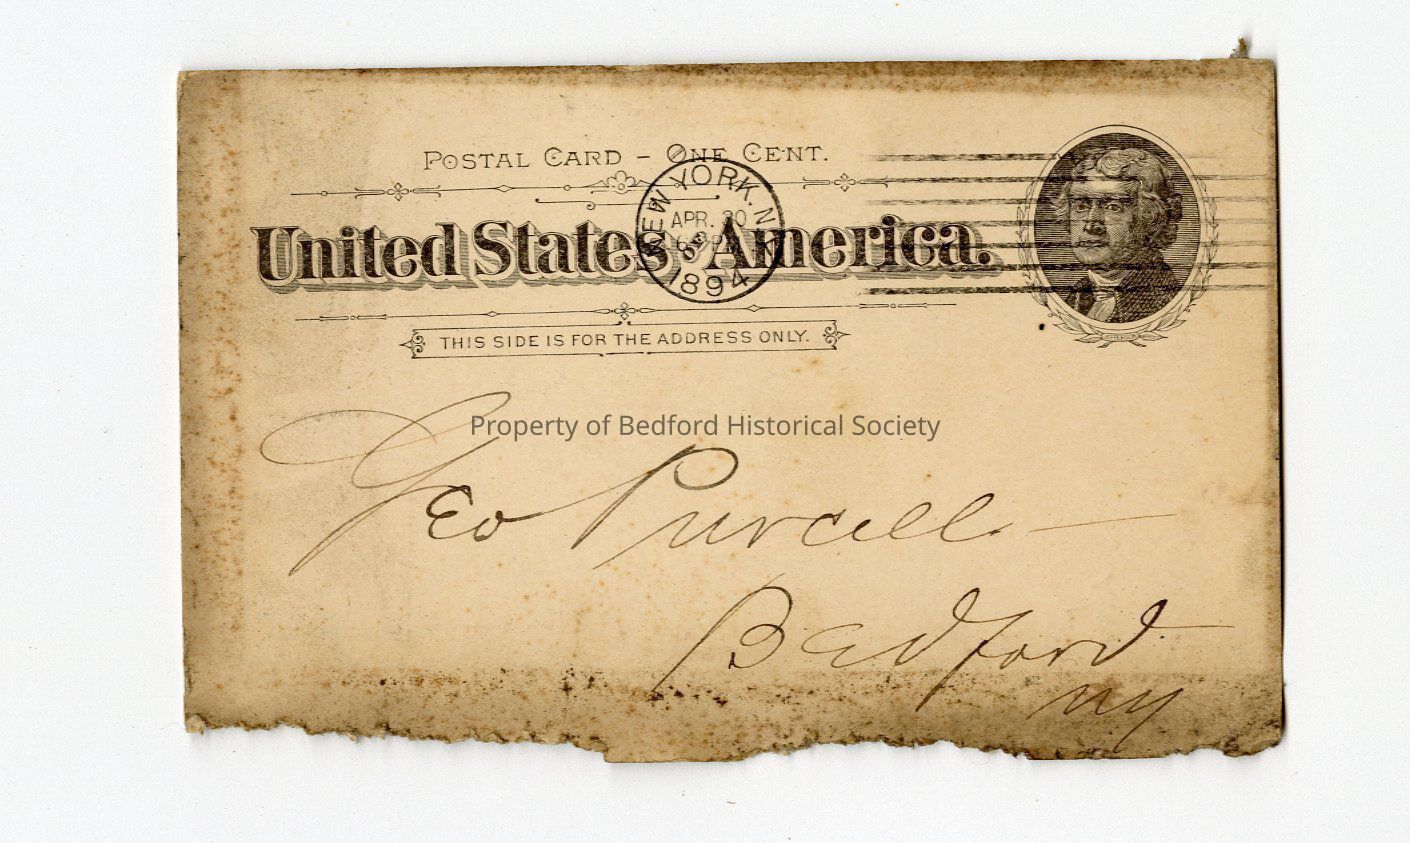 POSTAL CARD – ONE CENT.
United States of America.
NEW YORK, N.Y.
APR. 30
1894
JEFFERSON
THIS SIDE IS FOR THE ADDRESS ONLY.
Property of Bedford Historical Society
Geo Purcell
Bedford
NY